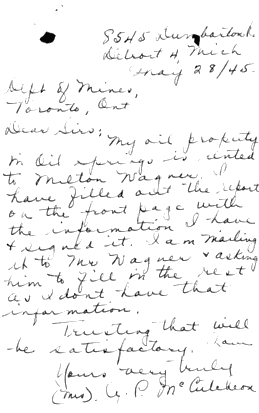 8545 Dumbarton Rd.
Detroit 4, Mich
May 28/45.
Dept of Mines,
Toronto, Ont
Dear Sirs;
My oil property
in Oil Springs is rented
to Milton Wagner. I
have filled out the report
on the front page with
the information I have
& signed it. I am mailing
it to Mr Wagner & asking
him to fill in the rest
as I don't have that
information.
Trusting that will
be satisfactory. I am
Yours very truly
(Mrs) A. P. McCutcheon